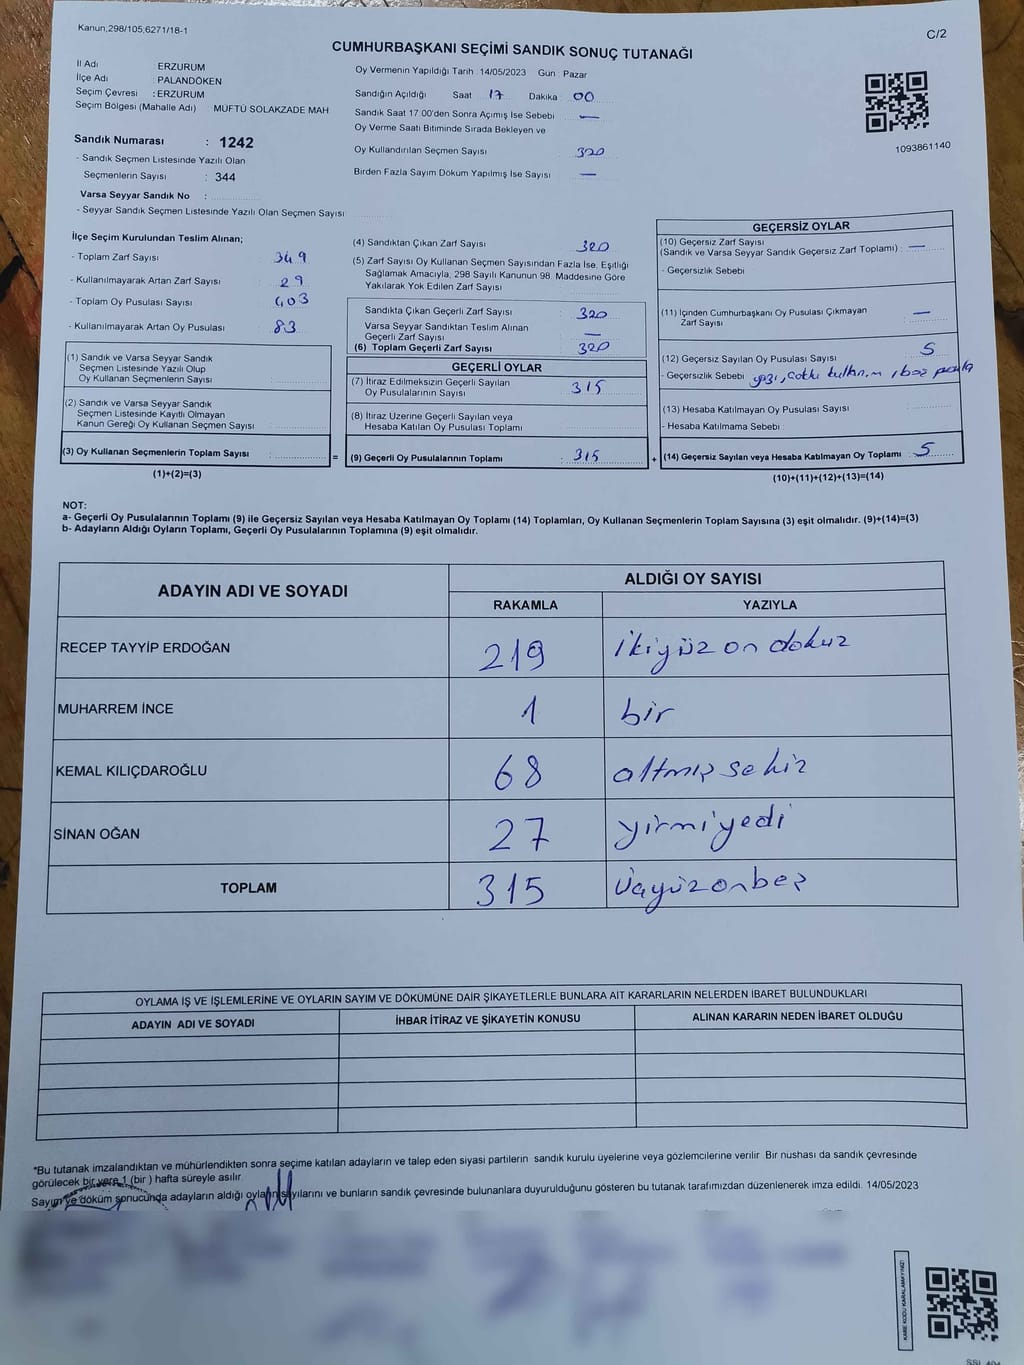 Kanun,298/105,6271/18-1
C/2
CUMHURBAŞKANI SEÇİMİ SANDIK SONUÇ TUTANAĞI
İl Adı ERZURUM
İlçe Adı PALANDÖKEN
Seçim Çevresi : ERZURUM
Seçim Bölgesi (Mahalle Adı) : MÜFTÜ SOLAKZADE MAH
Oy Vermenin Yapıldığı Tarih 14/05/2023 Gün Pazar
Sandığın Açıldığı Saat 17 Dakika 00
Sandık Saat 17:00'den Sonra Açımış İse Sebebi —
Oy Verme Saati Bitiminde Sırada Bekleyen ve
Oy Kullandırılan Seçmen Sayısı 320
Birden Fazla Sayım Döküm Yapılmış İse Sayısı —
1093861140
Sandık Numarası : 1242
- Sandık Seçmen Listesinde Yazılı Olan
Seçmenlerin Sayısı : 344
Varsa Seyyar Sandık No :
- Seyyar Sandık Seçmen Listesinde Yazılı Olan Seçmen Sayısı:
İlçe Seçim Kurulundan Teslim Alınan;
- Toplam Zarf Sayısı : 349
- Kullanılmayarak Artan Zarf Sayısı : 29
- Toplam Oy Pusulası Sayısı : 403
- Kullanılmayarak Artan Oy Pusulası : 83
(1) Sandık ve Varsa Seyyar Sandık
Seçmen Listesinde Yazılı Olup
Oy Kullanan Seçmenlerin Sayısı :
(2) Sandık ve Varsa Seyyar Sandık
Seçmen Listesinde Kayıtlı Olmayan
Kanun Gereği Oy Kullanan Seçmen Sayısı :
(3) Oy Kullanan Seçmenlerin Toplam Sayısı : =
(1)+(2)=(3)
(4) Sandıktan Çıkan Zarf Sayısı 320
(5) Zarf Sayısı Oy Kullanan Seçmen Sayısından Fazla İse, Eşitliği
Sağlamak Amacıyla, 298 Sayılı Kanunun 98. Maddesine Göre
Yakılarak Yok Edilen Zarf Sayısı
Sandıkta Çıkan Geçerli Zarf Sayısı 320
Varsa Seyyar Sandıktan Teslim Alınan
Geçerli Zarf Sayısı —
(6) Toplam Geçerli Zarf Sayısı 320
GEÇERLİ OYLAR
(7) İtiraz Edilmeksizin Geçerli Sayılan
Oy Pusulalarının Sayısı : 315
(8) İtiraz Üzerine Geçerli Sayılan veya
Hesaba Katılan Oy Pusulası Toplamı
(9) Geçerli Oy Pusulalarının Toplamı : 315 +
GEÇERSİZ OYLAR
(10) Geçersiz Zarf Sayısı
(Sandık ve Varsa Seyyar Sandık Geçersiz Zarf Toplamı) : —
- Geçersizlik Sebebi
(11) İçinden Cumhurbaşkanı Oy Pusulası Çıkmayan
Zarf Sayısı —
(12) Geçersiz Sayılan Oy Pusulası Sayısı 5
- Geçersizlik Sebebi yazı,
(13) Hesaba Katılmayan Oy Pusulası Sayısı
- Hesaba Katılmama Sebebi :
(14) Geçersiz Sayılan veya Hesaba Katılmayan Oy Toplamı : 5
(10)+(11)+(12)+(13)=(14)
NOT:
a- Geçerli Oy Pusulalarının Toplamı (9) ile Geçersiz Sayılan veya Hesaba Katılmayan Oy Toplamı (14) Toplamları, Oy Kullanan Seçmenlerin Toplam Sayısına (3) eşit olmalıdır. (9)+(14)=(3)
b- Adayların Aldığı Oyların Toplamı, Geçerli Oy Pusulalarının Toplamına (9) eşit olmalıdır.
ADAYIN ADI VE SOYADI ALDIĞI OY SAYISI
RAKAMLA YAZIYLA
RECEP TAYYİP ERDOĞAN 219 ikiyüz on dokuz
MUHARREM İNCE 1 bir
KEMAL KILIÇDAROĞLU 68 altmış sekiz
SİNAN OĞAN 27 yirmi yedi
TOPLAM 315 üçyüzonbeş
OYLAMA İŞ VE İŞLEMLERİNE VE OYLARIN SAYIM VE DÖKÜMÜNE DAİR ŞİKAYETLERLE BUNLARA AİT KARARLARIN NELERDEN İBARET BULUNDUKLARI
ADAYIN ADI VE SOYADI İHBAR İTİRAZ VE ŞİKAYETİN KONUSU ALINAN KARARIN NEDEN İBARET OLDUĞU
*Bu tutanak imzalandıktan ve mühürlendikten sonra seçime katılan adayların ve talep eden siyasi partilerin sandık kurulu üyelerine veya gözlemcilerine verilir. Bir nushası da sandık çevresinde
görülecek bir yere 1 (bir ) hafta süreyle asılır.
Sayım ve döküm sonucunda adayların aldığı oyların sayılarını ve bunların sandık çevresinde bulunanlara duyurulduğunu gösteren bu tutanak tarafımızdan düzenlenerek imza edildi. 14/05/2023
KARE KODU KARALAMAYINIZ!